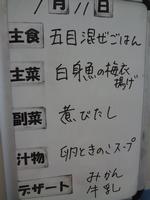 1月11日
主食 五目混ぜごはん
主菜 白身魚の梅衣
揚げ
副菜 煮びたし
汁物 卵ときのこスープ
デザート みかん
牛乳